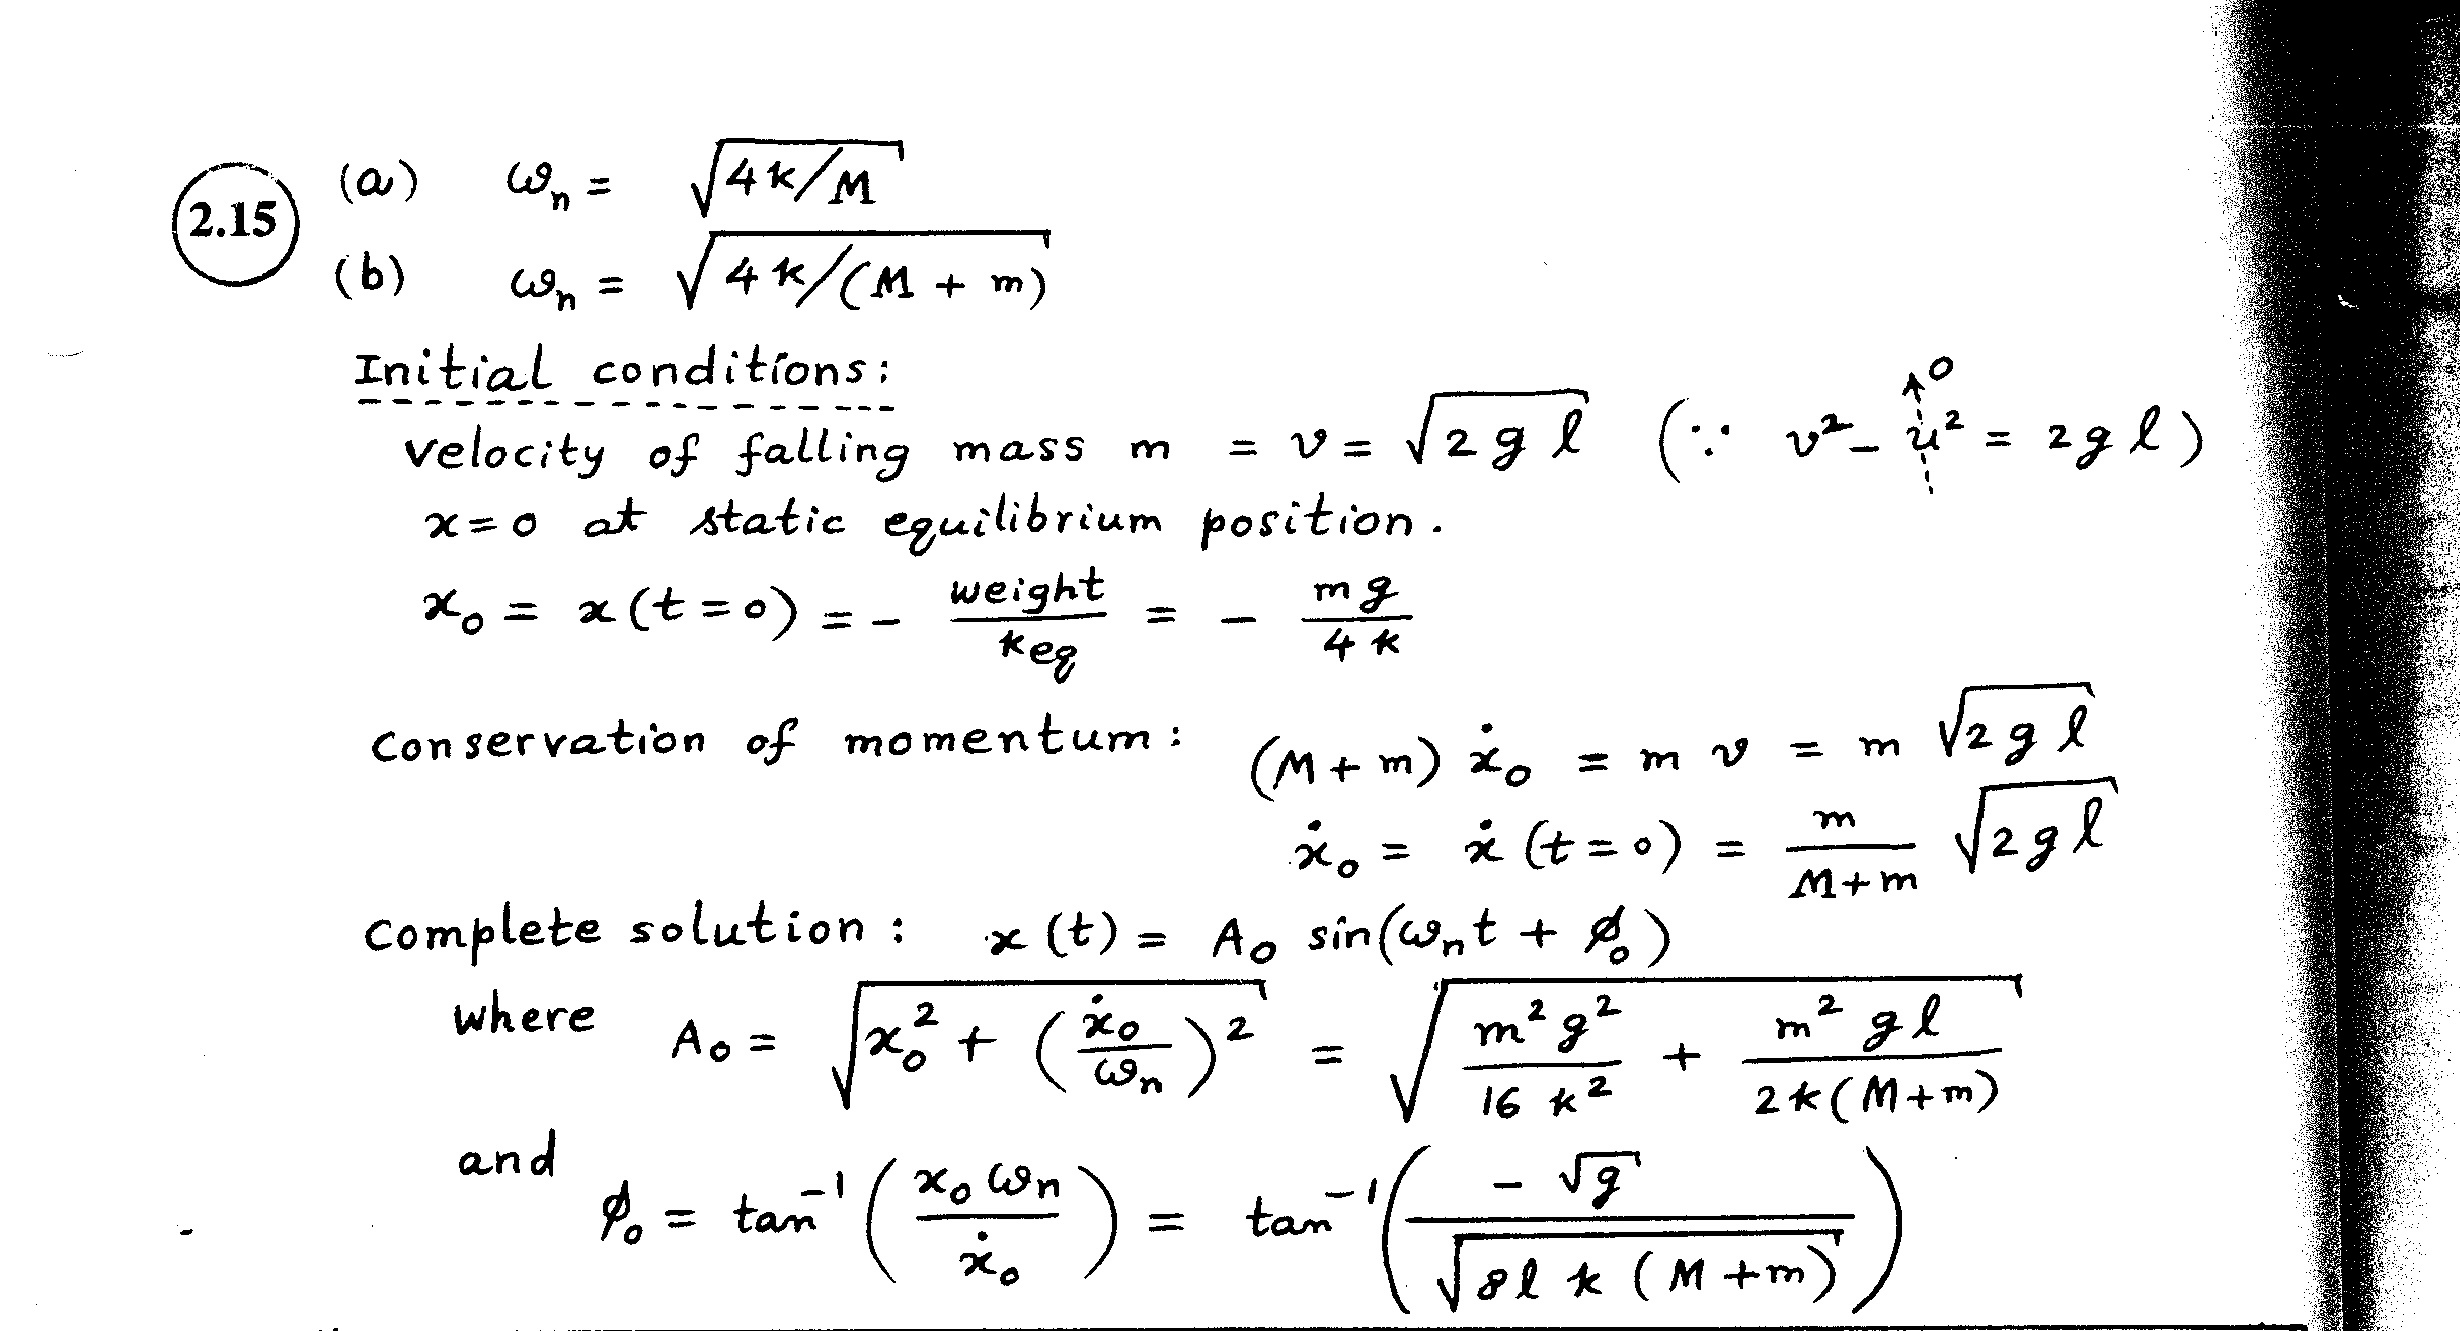 2.15 (a) ωₙ = √(4k/M)
(b) ωₙ = √(4k/(M + m))
Initial conditions:
velocity of falling mass m = v = √(2gl) (∵ v² - u² = 2gl) → 0
x = 0 at static equilibrium position.
x₀ = x(t=0) = - weight/k_eq = - mg/4k
Conservation of momentum: (M+m) ẋ₀ = m v = m √(2gl)
ẋ₀ = ẋ(t=0) = m/(M+m) √(2gl)
Complete solution: x(t) = A₀ sin(ωₙt + φ₀)
where A₀ = √(x₀² + (ẋ₀/ωₙ)²) = √(m²g²/16k² + m²gl/2k(M+m))
and φ₀ = tan⁻¹(x₀ωₙ/ẋ₀) = tan⁻¹(-√g/√(8lk(M+m)))